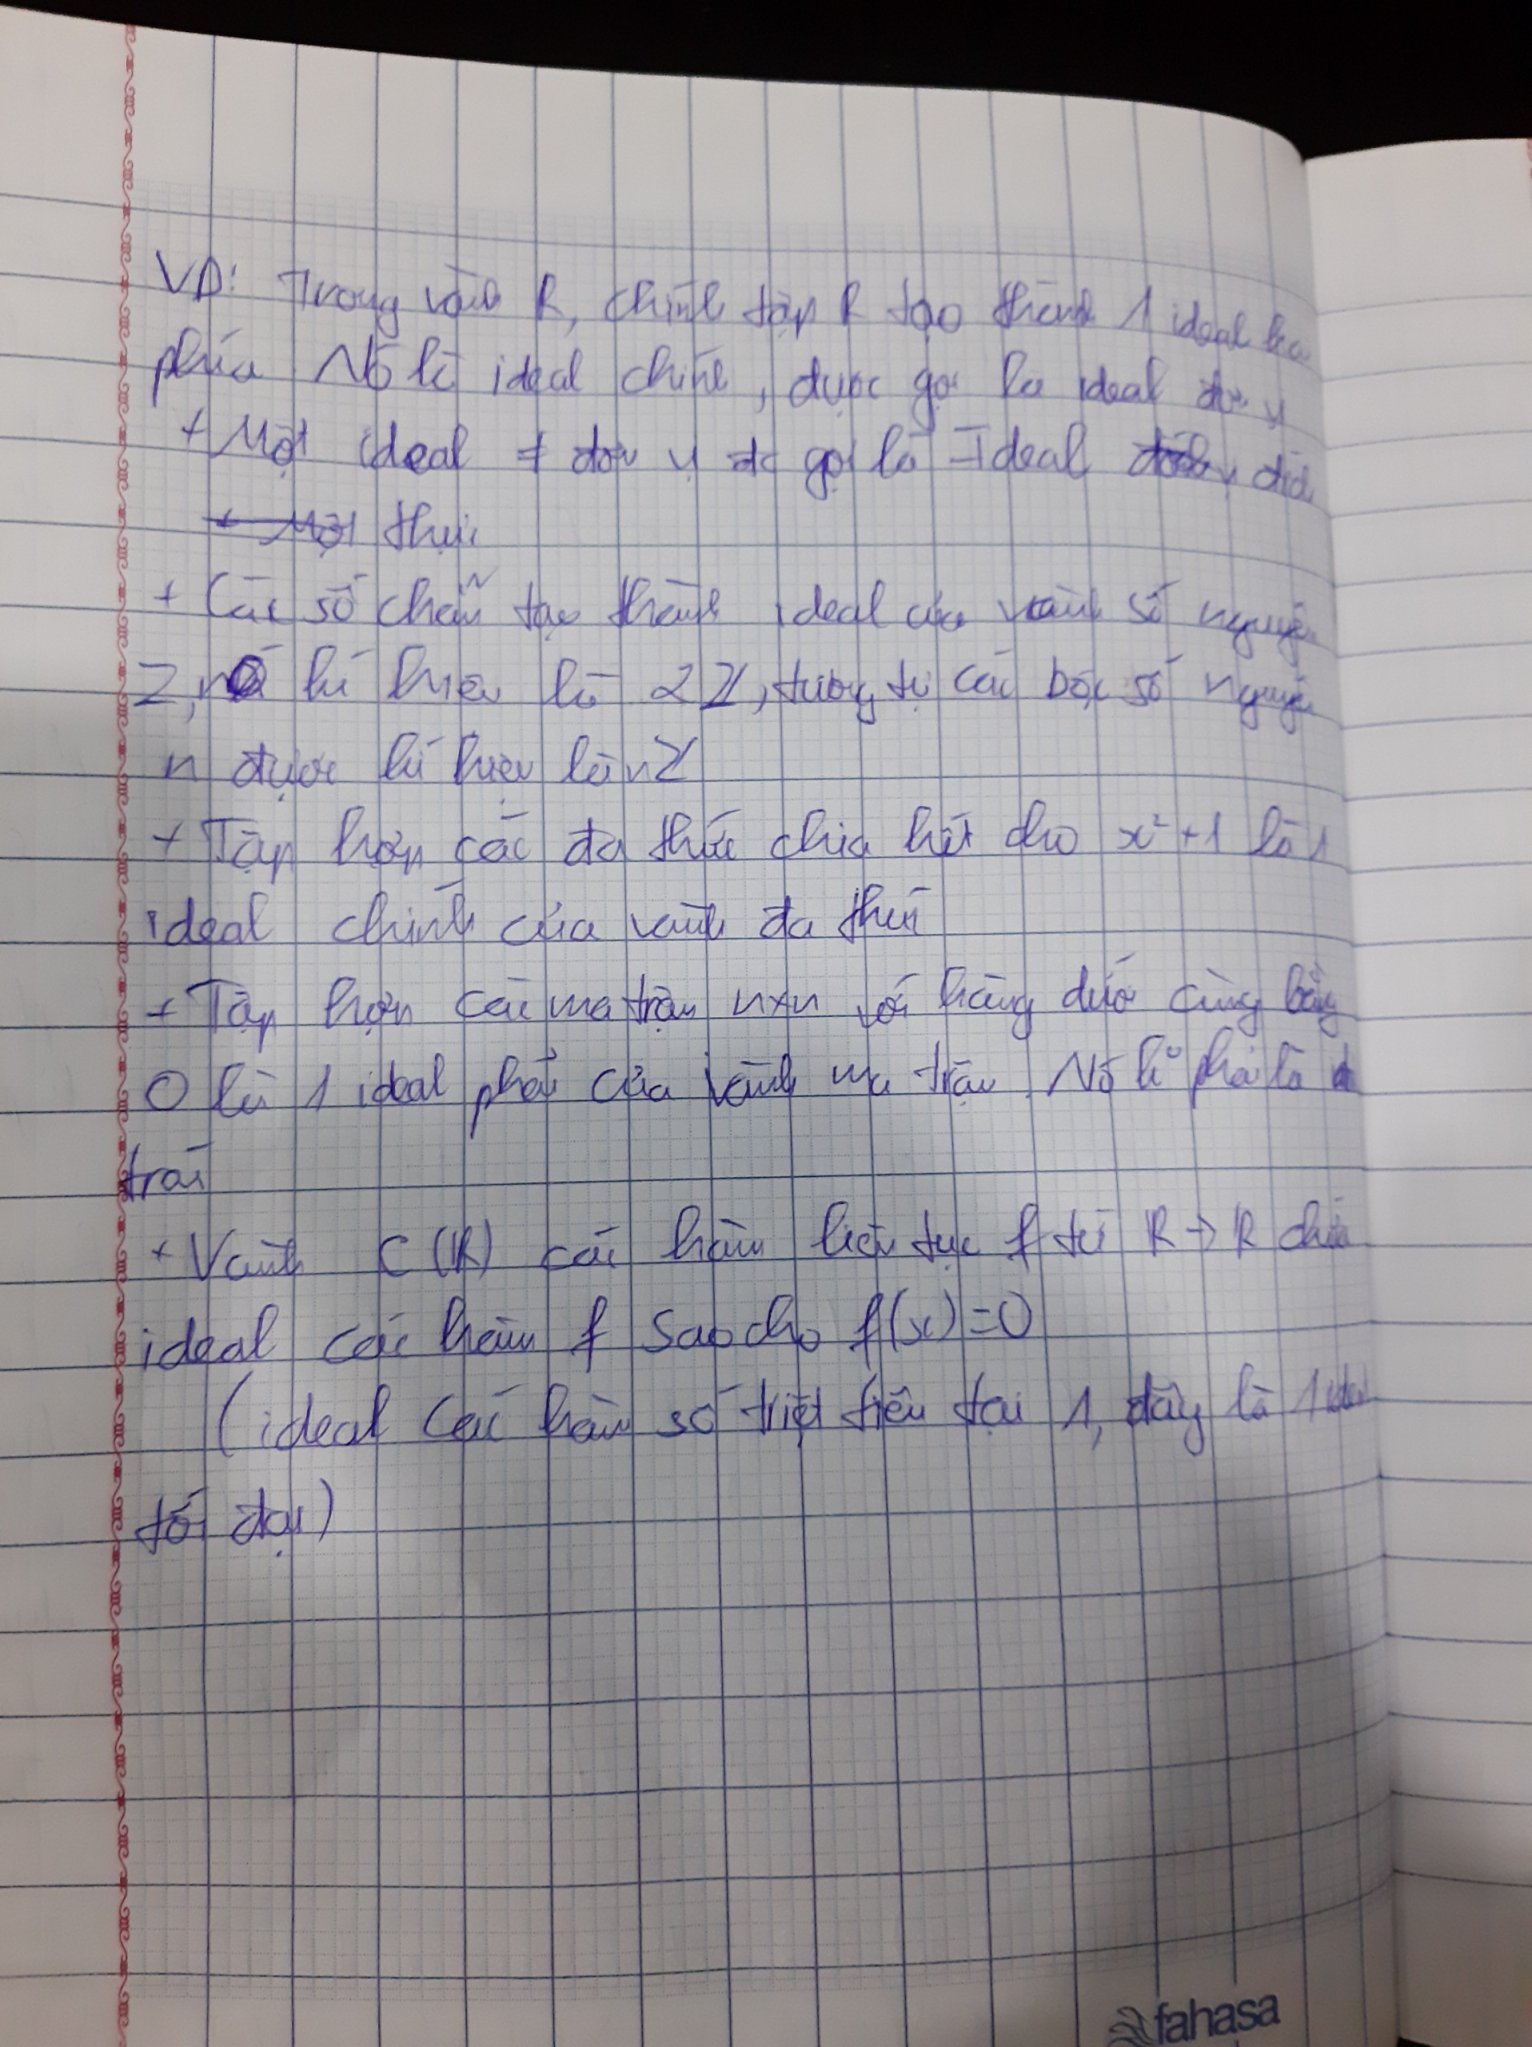 VD: Trong vành R, chính tập R tạo thành 1 ideal hai
phía Nó là ideal chính, được gọi là ideal đơn vị
+ Một ideal ≠ đơn vị đc gọi là Ideal đích
thực
+ Các số chẵn tạo thành ideal của vành số nguyên
Z, nó kí hiệu là 2Z, tương tự các bội số nguyên
n được kí hiệu là nZ
+ Tập hợp các đa thức chia hết cho x²+1 là 1
ideal chính của vành đa thức
+ Tập hợp các ma trận n×n với hàng dưới cùng bằng
0 là 1 ideal phải của vành ma trận. Nó k phải là
trái
+ Vành C(R) các hàm liên tục f từ R → R chứa
ideal các hàm f sao cho f(x)=0
(ideal các hàm số triệt tiêu tại 1, đây là 1 ideal
tối đại)
fahasa